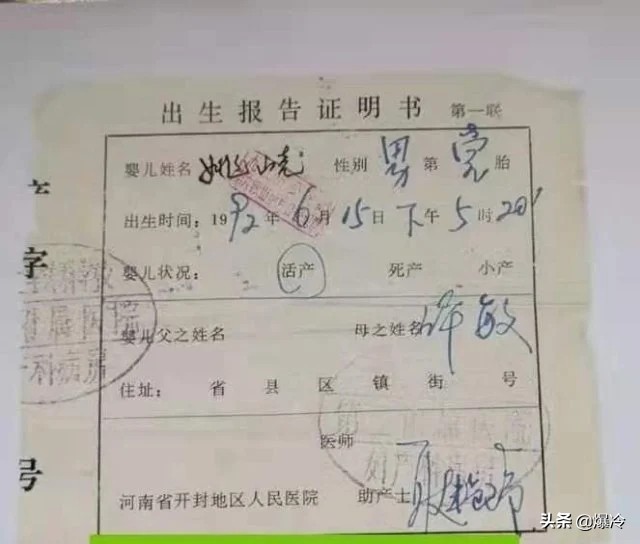 出生报告证明书 第一联
婴儿姓名 姚 性别 男 第 壹 胎
出生时间：1992年6月15日下午5时20'
婴儿状况： 活产 死产 小产
婴儿父之姓名 母之姓名 许敏
住址： 省 县 区 镇 街 号
医师
河南省开封地区人民医院 助产士
字
号
属医院
科病房
附属医院
妇产
头条 @爆冷